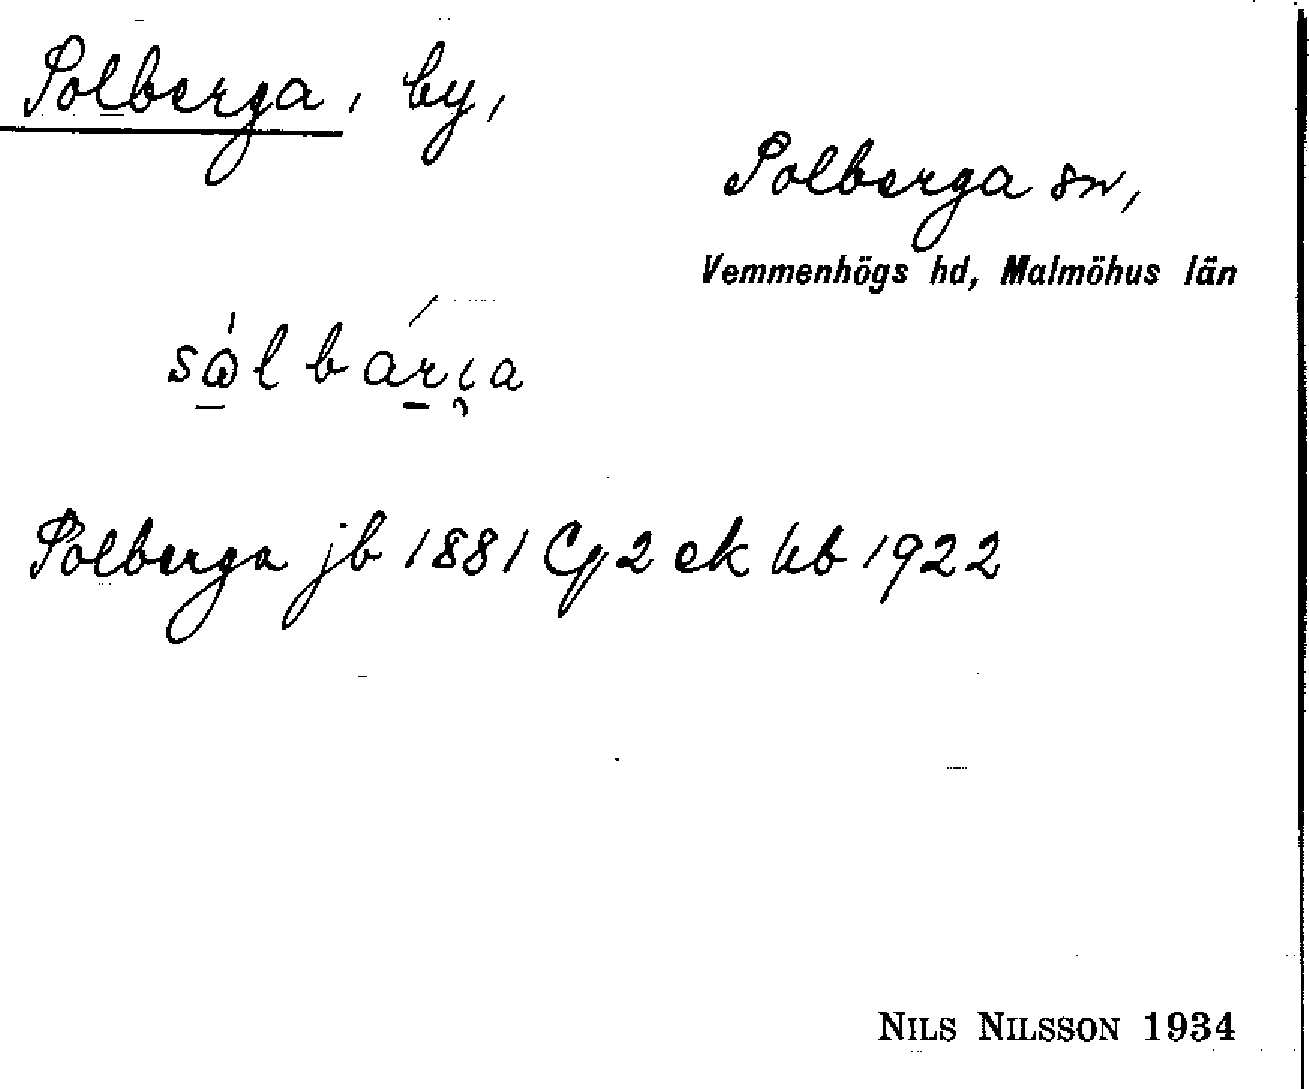 Solberga, by,
Solberga sn,
Vemmenhögs hd, Malmöhus län
Solberga jb 1881 Cg 2 ek kb 1922
NILS NILSSON 1934